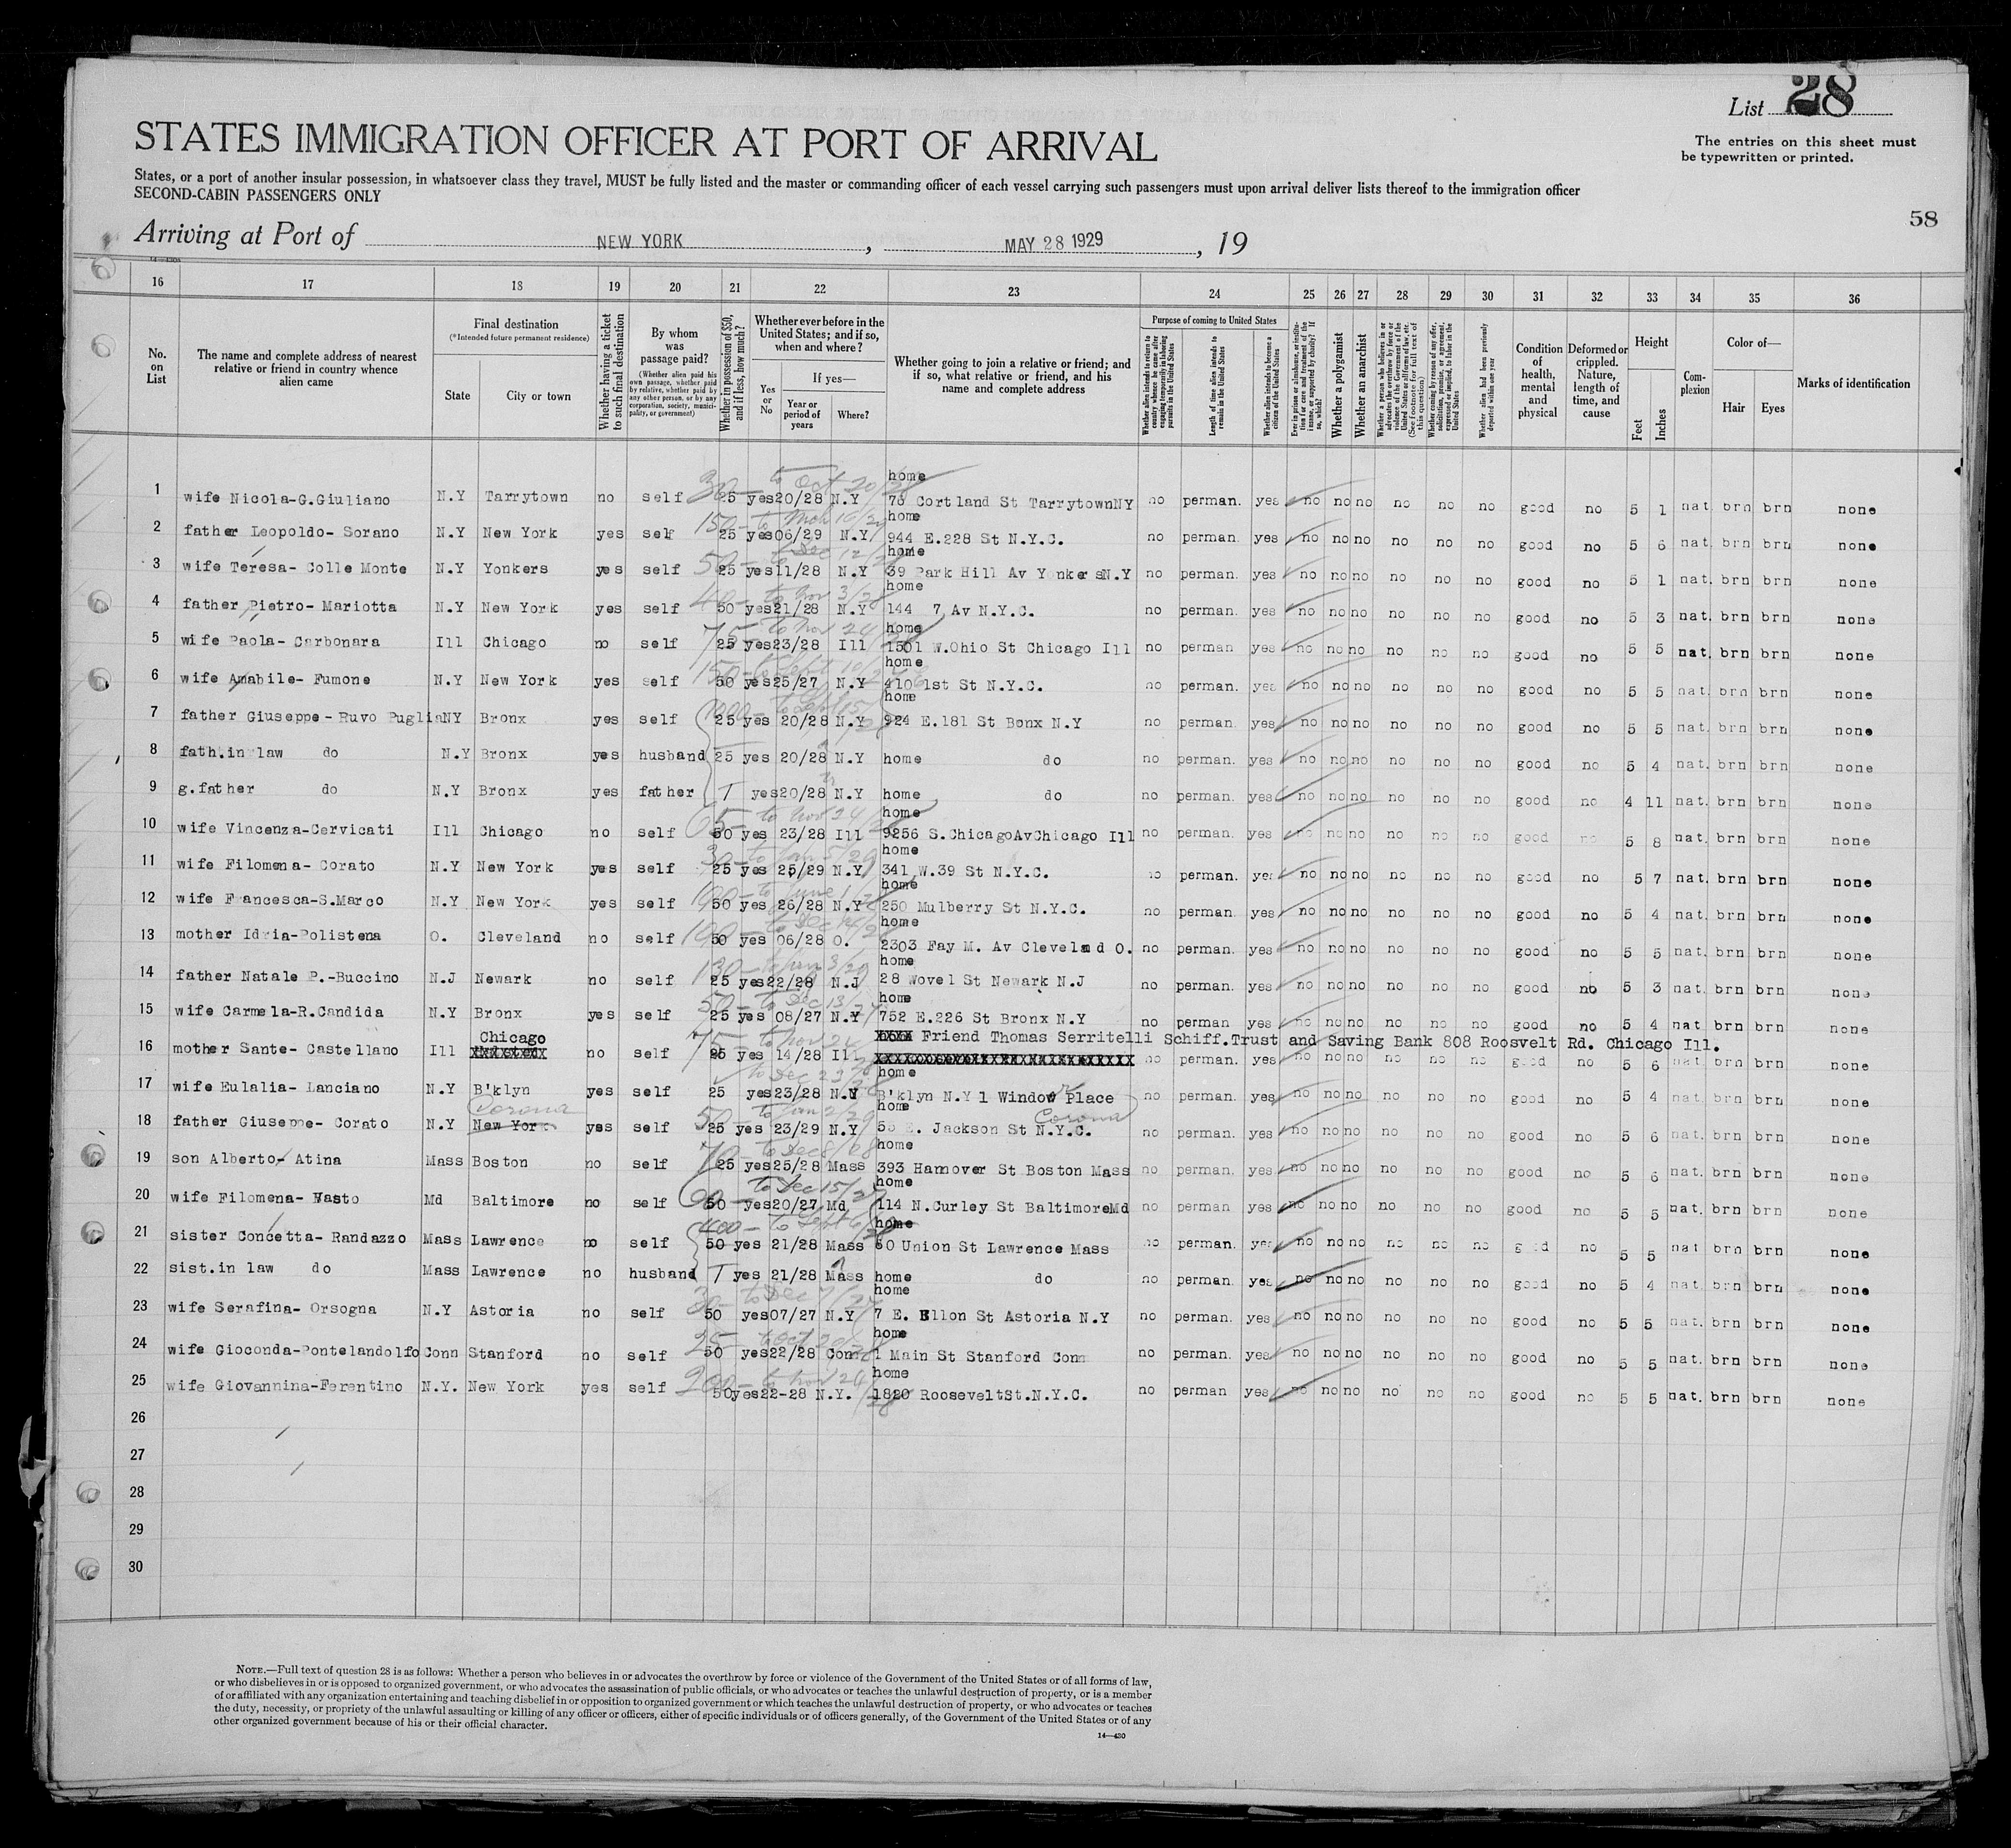 List 28
The entries on this sheet must
be typewritten or printed.
STATES IMMIGRATION OFFICER AT PORT OF ARRIVAL
States, or a port of another insular possession, in whatsoever class they travel, MUST be fully listed and the master or commanding officer of each vessel carrying such passengers must upon arrival deliver lists thereof to the immigration officer
SECOND-CABIN PASSENGERS ONLY
58
Arriving at Port of NEW YORK, MAY 28 1929, 19
16 17 18 19 20 21 22 23 24 25 26 27 28 29 30 31 32 33 34 35 36
No. on List
The name and complete address of nearest relative or friend in country whence alien came
Final destination
(*Intended future permanent residence)
State
City or town
Whether having a ticket to such final destination
By whom was passage paid?
(Whether alien paid his own passage, whether paid by relative, whether paid by any other person, or by any corporation, society, municipality, or government)
Whether in possession of $50, and if less, how much?
Whether ever before in the United States; and if so, when and where?
Yes or No
If yes—
Year or period of years
Where?
Whether going to join a relative or friend; and if so, what relative or friend, and his name and complete address
Purpose of coming to United States
Whether alien intends to return to country whence he came after engaging temporarily in laboring pursuits in the United States
Length of time alien intends to remain in the United States
Whether alien intends to become a citizen of the United States
Ever in prison or almshouse, or institution for care and treatment of the insane, or supported by charity? If so, which?
Whether a polygamist
Whether an anarchist
Whether a person who believes in or advocates the overthrow by force or violence of the Government of the United States or all forms of law, etc. (See footnote for full text of this question)
Whether coming by reason of any offer, solicitation, promise, or agreement, expressed or implied, to labor in the United States
Whether alien had been previously deported within one year
Condition of health, mental and physical
Deformed or crippled. Nature, length of time, and cause
Height
Feet
Inches
Complexion
Color of—
Hair
Eyes
Marks of identification
1 wife Nicola-G.Giuliano N.Y Tarrytown no self 30 25 yes 20/28 N.Y to Oct 20/28 home 76 Cortland St TarrytownNY no perman. yes no no no no no no good no 5 1 nat. brn brn none
2 father Leopoldo- Sorano N.Y New York yes self 150 25 yes 06/29 N.Y home 944 E.228 St N.Y.C. no perman. yes no no no no no no good no 5 6 nat. brn brn none
3 wife Teresa- Colle Monte N.Y Yonkers yes self 50 25 yes 11/28 N.Y home 39 Park Hill Av Yonkers N.Y no perman. yes no no no no no no good no 5 1 nat. brn brn none
4 father Pietro- Mariotta N.Y New York yes self 40 50 yes 21/28 N.Y to Nov 3/28 home 144 7 Av N.Y.C. no perman. yes no no no no no no good no 5 3 nat. brn brn none
5 wife Paola- Carbonara Ill Chicago no self 75 25 yes 23/28 Ill to Nov 24 home 1501 W.Ohio St Chicago Ill no perman yes no no no no no no good no 5 5 nat. brn brn none
6 wife Amabile- Fumone N.Y New York yes self 150 50 yes 25/27 N.Y home 410 1st St N.Y.C. no perman. yes no no no no no no good no 5 5 nat. brn brn none
7 father Giuseppe- Ruvo PugliaNY Bronx yes self 1000 25 yes 20/28 N.Y to Sept 15/28 home 924 E.181 St Bonx N.Y no perman. yes no no no no no no good no 5 5 nat. brn brn none
8 fath.in law do N.Y Bronx yes husband 25 yes 20/28 N.Y home do no perman. yes no no no no no no good no 5 4 nat. brn brn none
9 g.father do N.Y Bronx yes father yes 20/28 N.Y home do no perman. yes no no no no no no good no 4 11 nat. brn brn none
10 wife Vincenza-Cervicati Ill Chicago no self 65 50 yes 23/28 Ill to Nov 24 home 9256 S.ChicagoAvChicago Ill no perman. yes no no no no no no good no 5 8 nat. brn brn none
11 wife Filomena- Corato N.Y New York yes self 30 25 yes 25/29 N.Y to Jan 5/29 home 341 W.39 St N.Y.C. no perman. yes no no no no no no good no 5 7 nat. brn brn none
12 wife Francesca-S.Marco N.Y New York yes self 100 50 yes 26/28 N.Y to June 1/28 home 250 Mulberry St N.Y.C. no perman. yes no no no no no no good no 5 4 nat. brn brn none
13 mother Idria-Polistena O. Cleveland no self 100 50 yes 06/28 O. to Dec home 2303 Fay M. Av Cleveland O. no perman. yes no no no no no no good no 5 5 nat. brn brn none
14 father Natale P.-Buccino N.J Newark no self 130 25 yes 22/28 N.J to Jan 3/29 home 28 Wovel St Newark N.J no perman. yes no no no no no no good no 5 3 nat. brn brn none
15 wife Carmela-R.Candida N.Y Bronx yes self 50 25 yes 08/27 N.Y to Dec 13/27 home 752 E.226 St Bronx N.Y no perman yes no no no no no no good no 5 4 nat. brn brn none
16 mother Sante- Castellano Ill Chicago no self 75 25 yes 14/28 Ill to Nov 24 Friend Thomas Serritelli Schiff.Trust and Saving Bank 808 Roosvelt Rd. Chicago Ill. no perman. yes no no no no no no good no 5 6 nat. brn brn none
17 wife Eulalia- Lanciano N.Y B'klyn yes self 25 yes 23/28 N.Y to Dec 23/28 home B'klyn N.Y 1 Window Place no perman. yes no no no no no no good no 5 4 nat. brn brn none
18 father Giuseppe- Corato N.Y Corona New York yes self 50 25 yes 23/29 N.Y to Jan 2/29 home Jackson St N.Y.C. Corona no perman. yes no no no no no no good no 5 6 nat. brn brn none
19 son Alberto- Atina Mass Boston no self 70 25 yes 25/28 Mass to Dec 8/28 home 393 Hanover St Boston Mass no perman. yes no no no no no no good no 5 6 nat. brn brn none
20 wife Filomena- Vasto Md Baltimore no self 60 50 yes 20/27 Md to Dec 15/27 home 114 N.Curley St BaltimoreMd no perman yes no no no no no no good no 5 5 nat. brn brn none
21 sister Concetta- Randazzo Mass Lawrence no self 400 50 yes 21/28 Mass to Sept 6/28 home 60 Union St Lawrence Mass no perman. yes no no no no no no good no 5 5 nat brn brn none
22 sist.in law do Mass Lawrence no husband yes 21/28 Mass home do no perman. yes no no no no no no good no 5 4 nat. brn brn none
23 wife Serafina- Orsogna N.Y Astoria no self 50 yes 07/27 N.Y home 7 E. Ellon St Astoria N.Y no perman. yes no no no no no no good no 5 5 nat. brn brn none
24 wife Gioconda-Pontelandolfo Conn Stanford no self 25 50 yes 22/28 Conn to Oct 20/28 home 1 Main St Stanford Conn no perman. yes no no no no no no good no 5 5 nat. brn brn none
25 wife Giovannina-Ferentino N.Y. New York yes self 200 50 yes 22-28 N.Y. to Nov 24/28 home 1820 RooseveltSt.N.Y.C. no perman yes no no no no no no good no 5 5 nat. brn brn none
26
27
28
29
30
NOTE.—Full text of question 28 is as follows: Whether a person who believes in or advocates the overthrow by force or violence of the Government of the United States or of all forms of law,
or who disbelieves in or is opposed to organized government, or who advocates the assassination of public officials, or who advocates or teaches the unlawful destruction of property, or is a member
of or affiliated with any organization entertaining and teaching disbelief in or opposition to organized government or which teaches the unlawful destruction of property, or who advocates or teaches
the duty, necessity, or propriety of the unlawful assaulting or killing of any officer or officers, either of specific individuals or of officers generally, of the Government of the United States or of any
other organized government because of his or their official character.
14—430